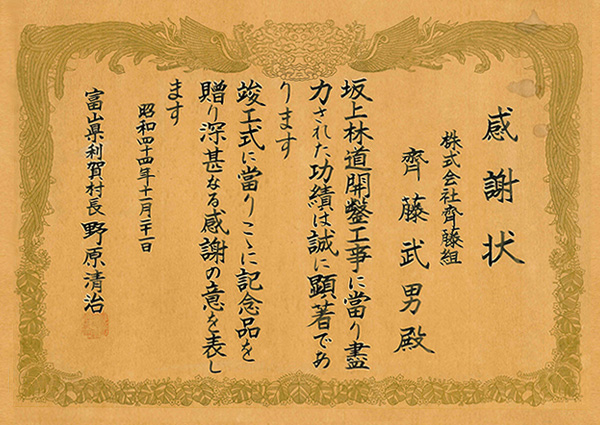 感謝状
株式会社齊藤組
齊藤武男殿
坂上林道開鑿工事に當り盡
力された功績は誠に顕著であ
ります
竣工式に當りこゝに記念品を
贈り深甚なる感謝の意を表し
ます
昭和四十四年十一月二十一日
富山県利賀村長 野原清治